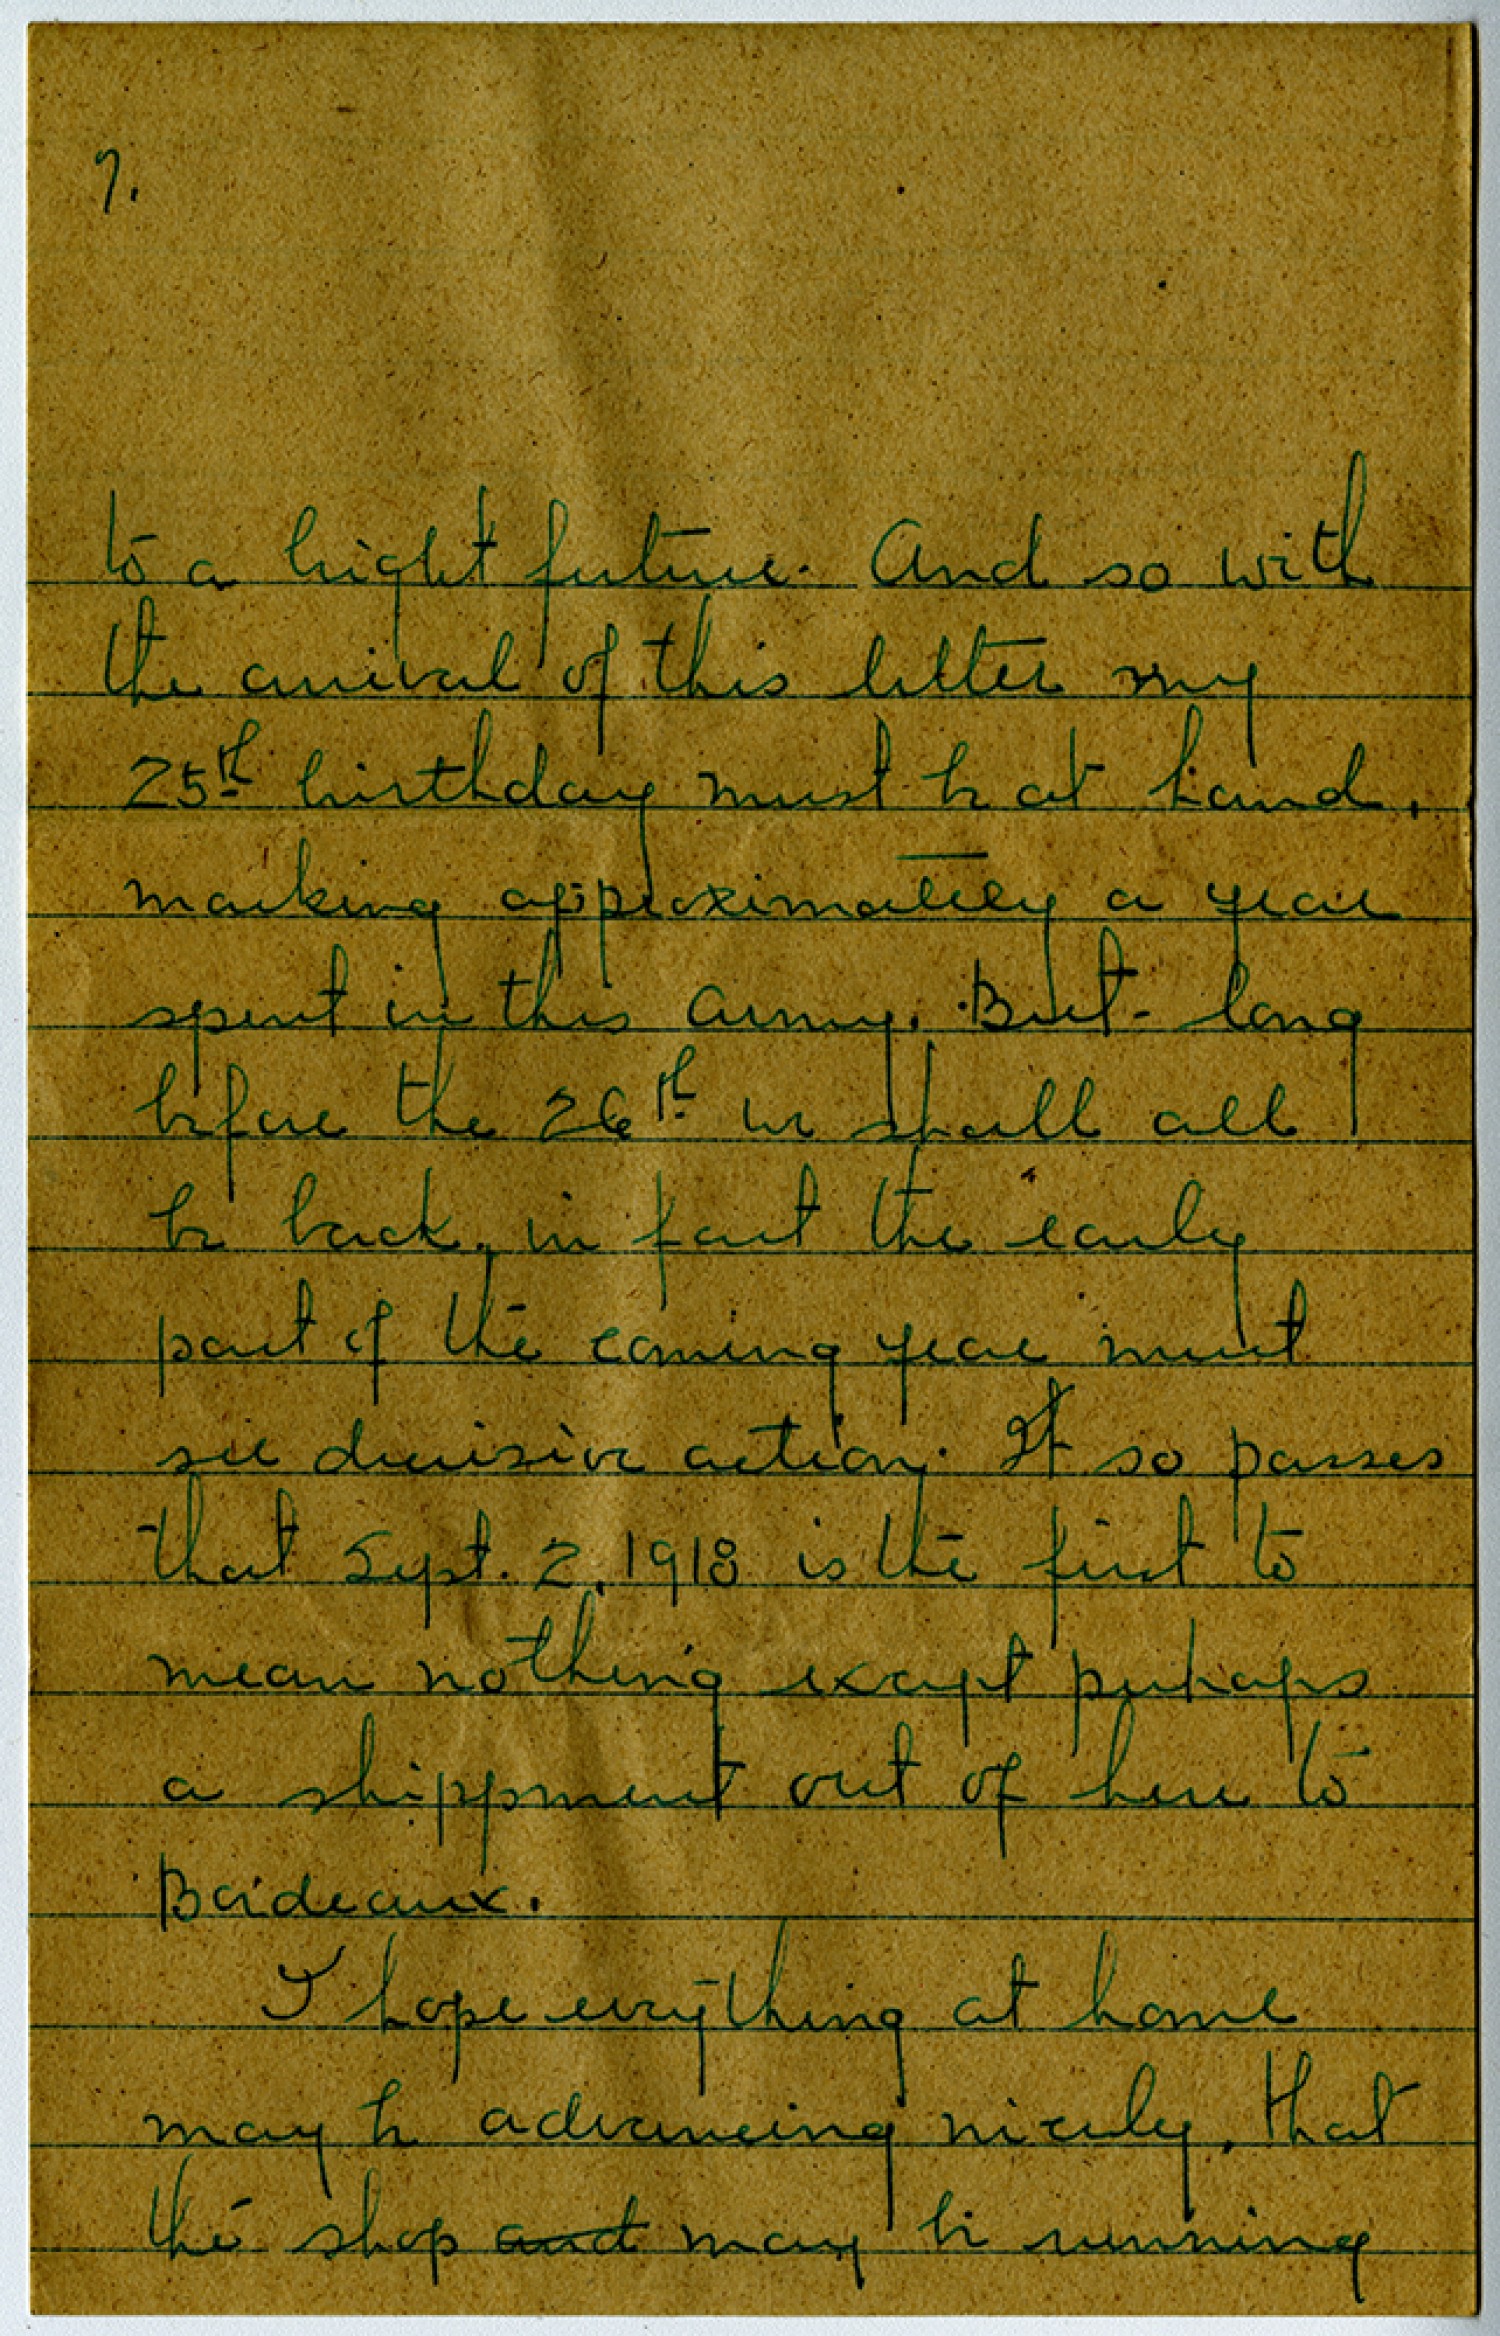 7.
to a bright future. And so with
the arrival of this letter my
25th birthday must be at hand,
marking approximately a year
spent in this army. But long
before the 26th we shall all
be back, in fact the early
part of the coming year must
see decisive action. It so passes
that Sept. 2, 1918 is the first to
mean nothing except perhaps
a shippment out of here to
Bordeaux.
I hope everything at home
may be advancing nicely, that
the shop and may be running